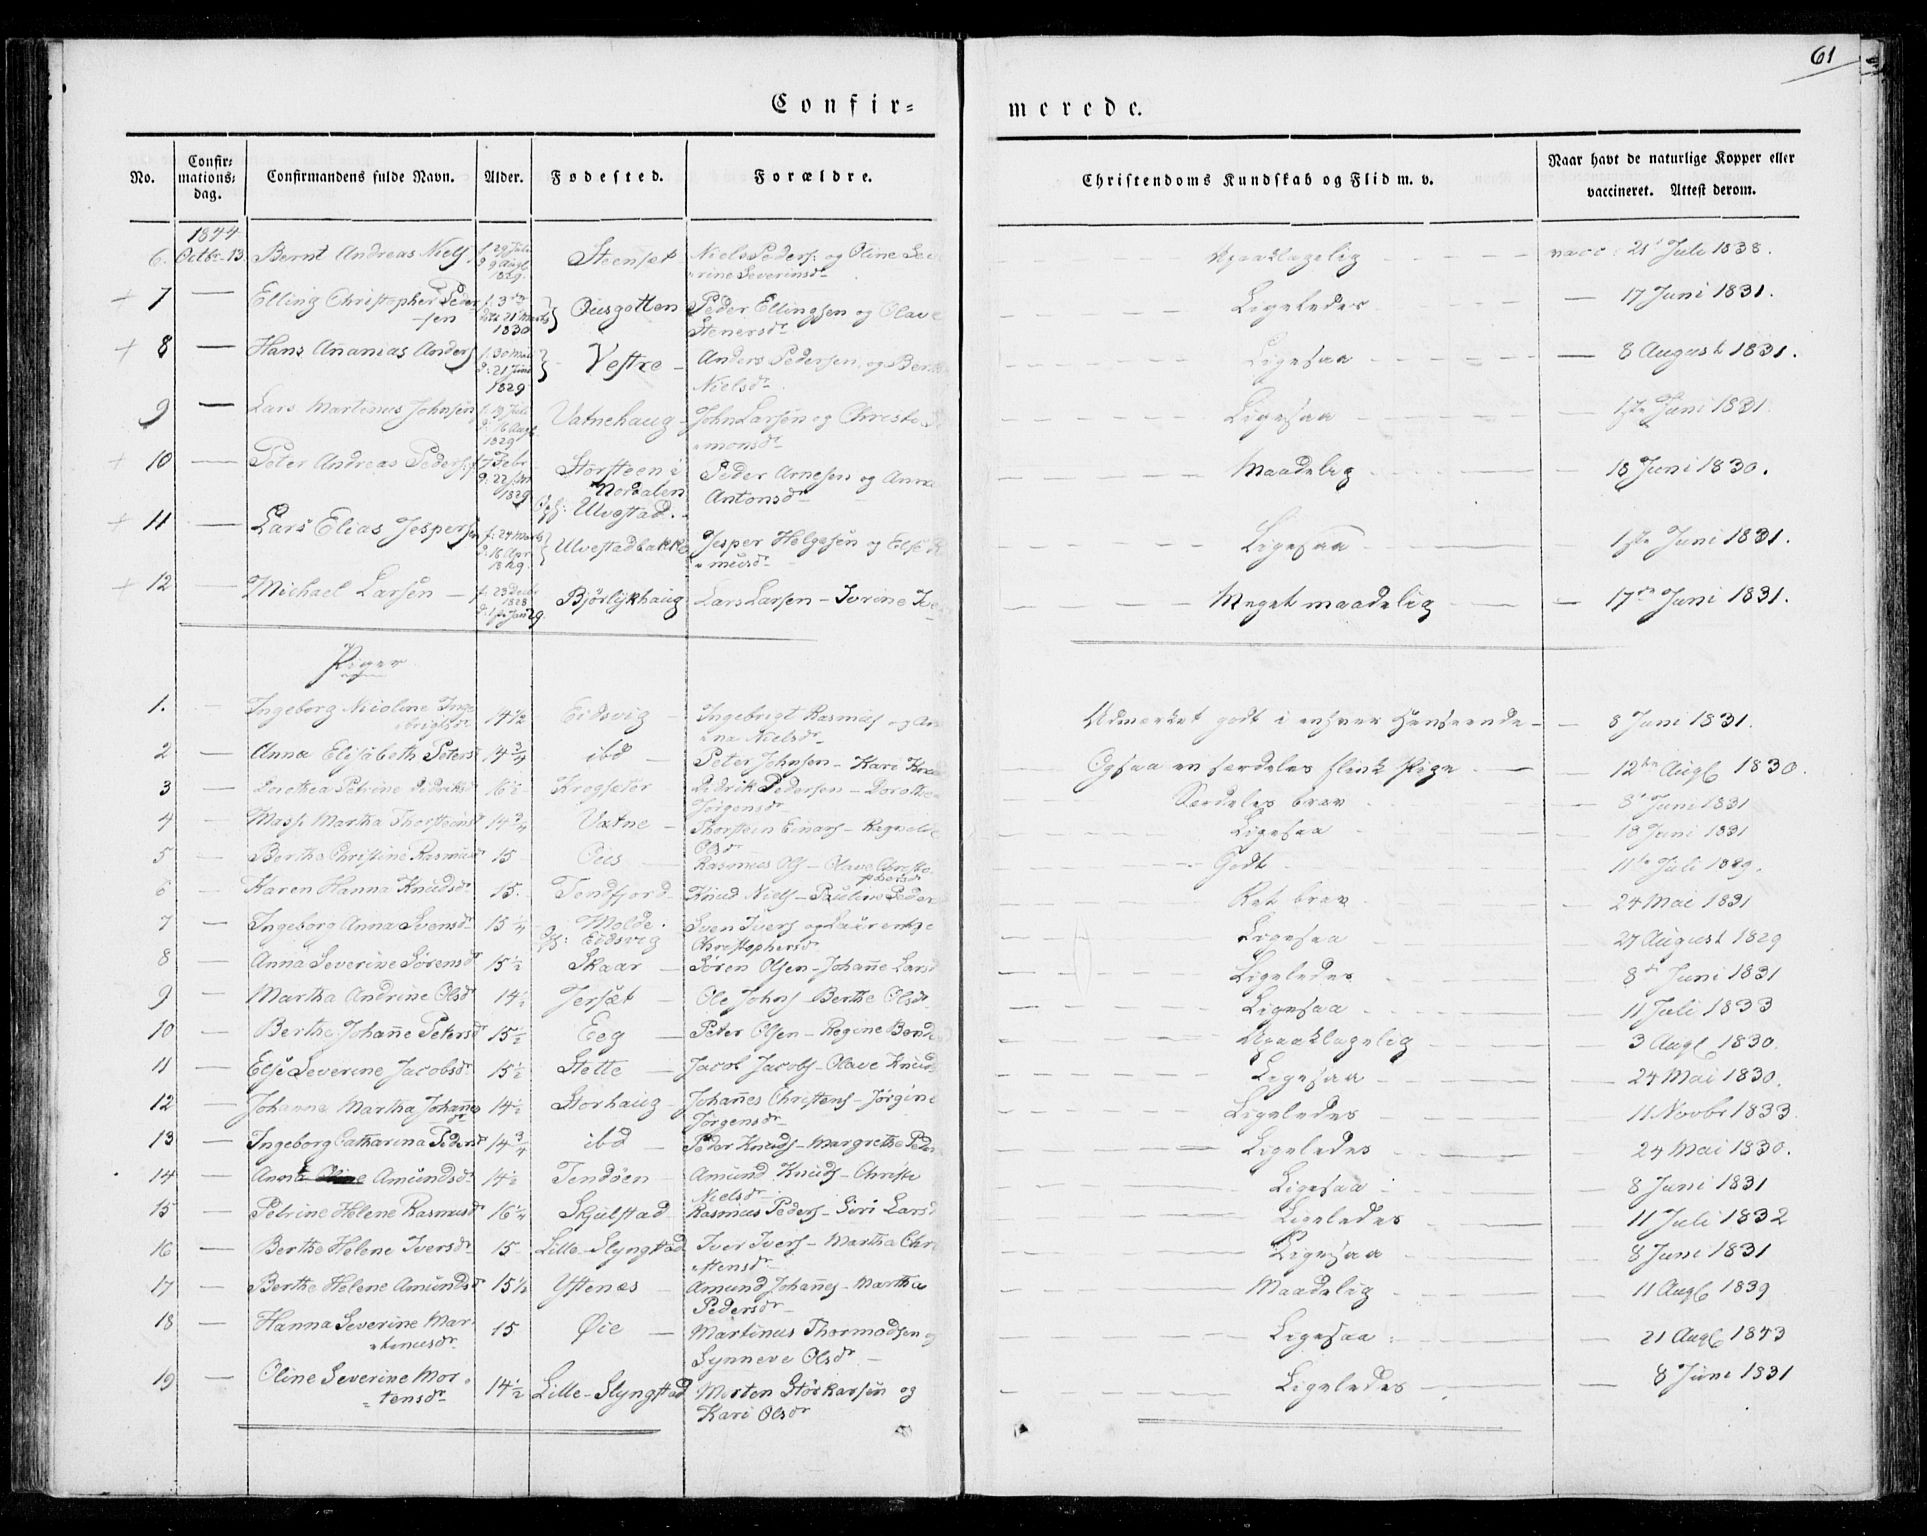 61
Confir=
merede.
No.
Confir=
mations=
dag.
Confirmandens fulde Navn.
Alder.
Fødested.
Forældre.
Christendoms Kundskab og Flid m. v.
Naar havt de naturlige Kopper eller
vaccineret. Attest derom.
1844
6. Octbr 13. Bernt Andreas Niels. f. 29 Juli d. 9 Augt 1829. Steensæt Niels Peders: og Oline Se=
verine Severinsdr Upaaklagelig vacc: 21 Juli 1838.
+ 7 — Elling Christopher Peder
sen 1830 Peder Ellingsen og Olave
Stenersdr Ligeledes — 17 Juni 1831.
+ 8 — Hans Ananias Anders f. 30 Mai d: 21 Juni 1829 Vestre Anders Pedersen, og Berthe
Nielsdr Ligesaa — 8 August 1831.
9 — Lars Martinus Johnsen f. 19 Juli d: 16 Augt 1829 Vatnehaug John Larsen og Christi
monsdr Ligesaa 1ste Juni 1831.
+ 10 — Peter Andreas Peders: f. 7 Febr d: 22 1829 Storsteen i
Nordalen
Opf: Ulvestad. Peder Arnesen og Anna
Antonsdr Maadelig 18 Juni 1830.
+ 11 — Lars Elias Jespersen f: 24 Marts d: 18 Apr 1829. Ulvestadbakke Jesper Helgesen og Else
Ligesaa 1ste Juni 1831.
+ 12 — Michael Larsen f. 23 Decbr 1828 d: 1 Jan 29. Bjørlykhaug Lars Larsen — Ivrine Iver
Meget maadelig — 17de Juni 1831.
Piger
1. — Ingeborg Nicoline Inge
brigtsdr 14½ Eidsvig Ingebrigt Rasmus og An
na Nielsdr Udmærket godt i enhver Henseende — 8 Juni 1831.
2 — Anna Elisabeth Petersd 14¾ ibd Peter Johnsen — Kari Knud
Ogsaa en særdeles flink Pige — 12te Augt 1830.
3 — Dorothea Petrine Didriksd 16½ Krogsæter Didrik Pedersen — Dorothe
Jørgensdr Særdeles brav 8 Juni 1831
4 — Masi Martha Thorsteinsd 14¾ Vatne Thorstein Einars — Ragnilde
Olsdr Ligesaa 18 Juni 1831
5 — Berthe Christine Rasmusd 15 Øies Rasmus Ols — Olave Christo
phersdr Godt 11te Juli 1829.
6 — Karen Hanna Knudsdr 15. Tendfjord Knud Niels — Pauline Peder
Ret brav 24 Mai 1831
7 — Ingeborg Anna Svensdr 15¼ Molde.
Opf: Eidsvig Sven Ivers og Laurentze
Christophersdr Ligesaa 27 August 1829
8 — Anna Severine Sørensd 15½ Skaar Søren Olsen — Johanne Larsd
Ligeledes 8de Juni 1831
9 — Martha Andrine Olsd 14½ Jersæt Ole Johns — Berthe Olsdr Ligesaa 11 Juli 1833
10 — Berthe Johanne Petersd 15½ Eeg Peter Olsen — Regine Bend
Upaaklagelig 3 Augt 1830.
11 — Else Severine Jacobsdr 15½ Stette Jacob Jacobs — Olave Knuds
Ligesaa 24 Mai 1830.
12 — Johanna Martha Johannes
dr 14½ Storhaug Johannes Christens — Jørgine
Jørgensdr Ligeledes 11 Novbr 1833.
13 — Ingeborg Catharina Pedersd 14¾ ibd Peder Knuds — Margrethe Peder
Ligeledes 24 Mai 1830.
14 — Amundsdr 14½ Tendøen Amund Knuds — Christi
Nielsdr Ligesaa 8 Juni 1831
15 — Petrine Helene Rasmusd 16¼ Skjelstad Rasmus Peders — Siri Larsd
Ligeledes 11 Juli 1832
16 — Berthe Helene Iversdr 15 Lille-Slyngstad Iver Ivers — Martha Chri
stensdr Ligesaa 8 Juni 1831
17 — Berthe Helene Amundsd 15½ Ystenes Amund Johannes — Martha
Pedersdr Maadelig 11 Augt 1839
18 — Hanna Severine Mar=
tinusdr 15 Øie Martinus Thormodsen og
Synneve Olsdr Ligesaa 21 Augt 1843
19 — Oline Severine Mor=
tensdr 14½ Lille-Slyngstad Morten Storkarsen og
Kari Olsdr Ligeledes 8 Juni 1831